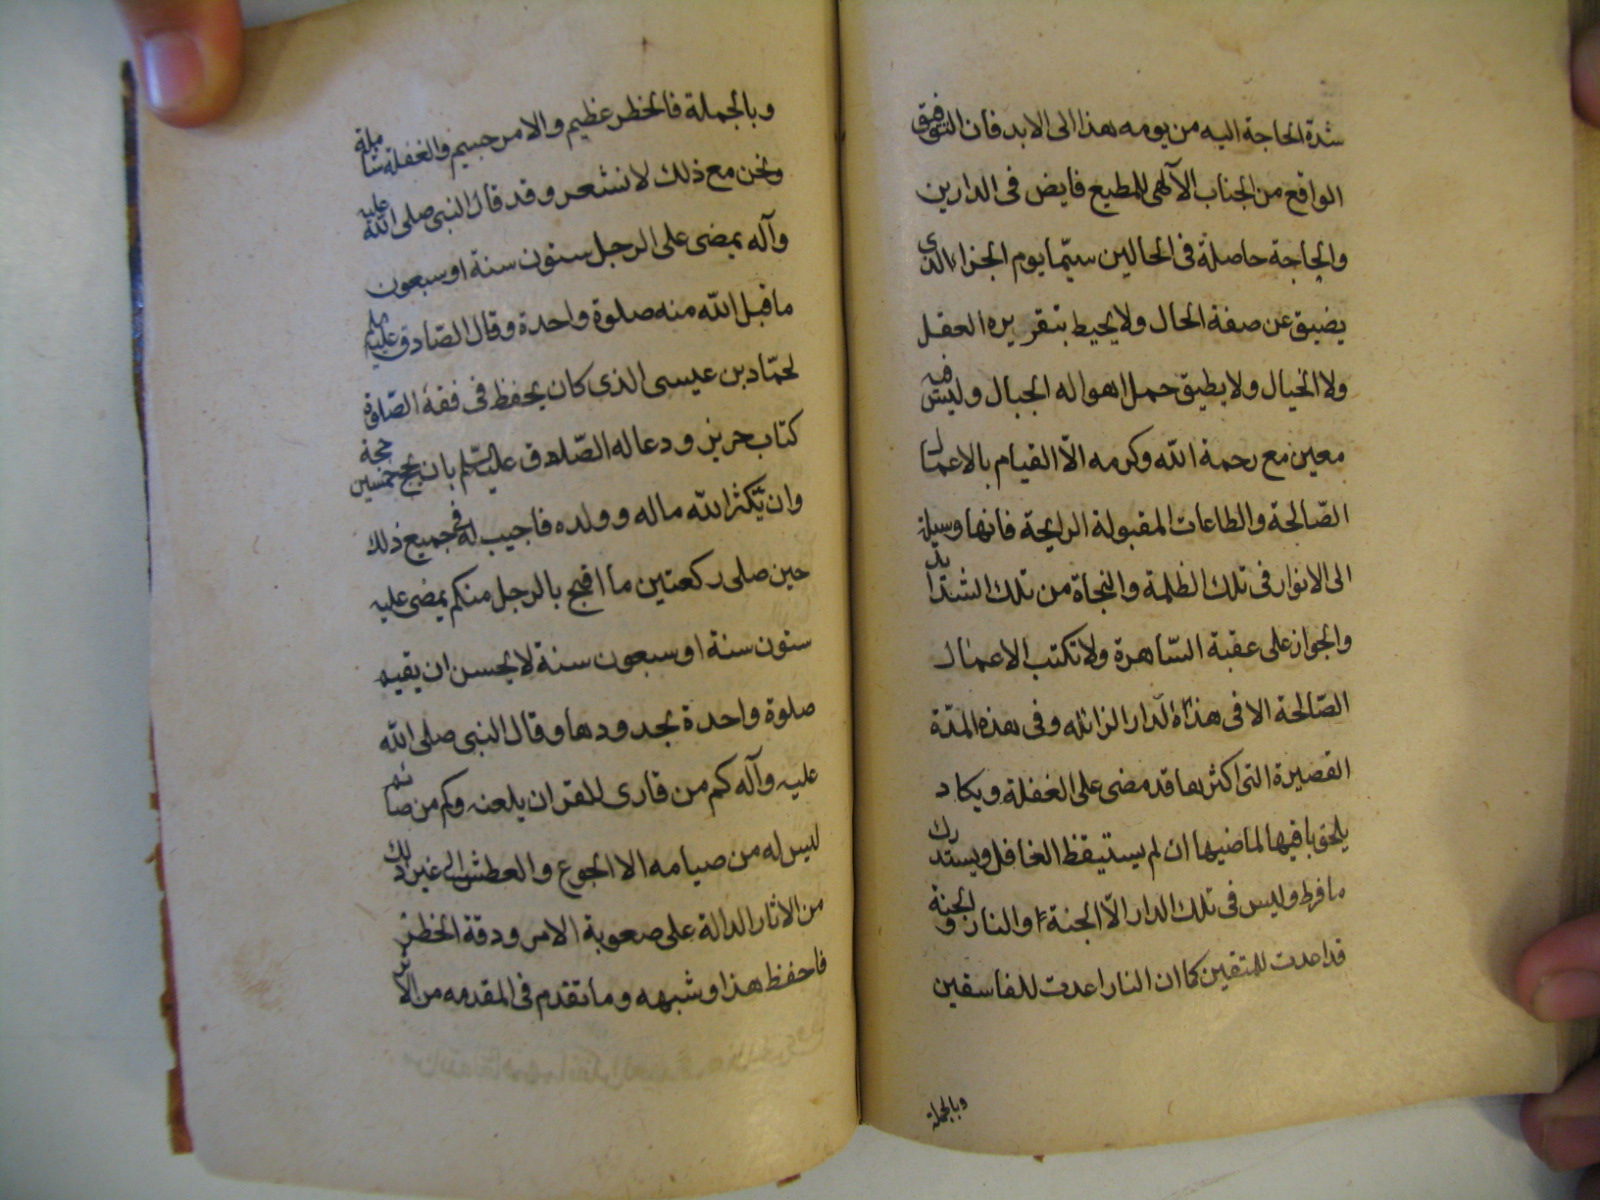 شدة الحاجة اليه من يومه هذا الى الابد فان التوفيق
الواقع من الجناب الآلهي للمطيع فايض فى الدارين
والحاجة حاصلة فى الحالين سيّما يوم الجزاء الذى
يضيق عن صفة الحال ولا يحيط بتقريره العقل
ولا الخيال ولا يطيق حمل اهواله الجبال وليس فيه
معين مع رحمة الله وكرمه الّا القيام بالاعمال
الصّالحة والطاعات المقبولة الرابحة فانها وسيلة
الى الانوار فى تلك الظلمة والنجاة من تلك الشدايد
والجواز على عقبة السّاهرة ولا تكتب الاعمال
الصّالحة الا فى هذه الدار الزائله وفى هذه المدّة
القصيرة التى اكثرها قد مضى على الغفلة ويكاد
يلحق باقيها لماضيها ان لم يستيقظ الغافل ويستدرك
ما فرط وليس فى تلك الدار الّا الجنة او النار والجنة
قد اعدت للمتقين كما ان النار اعدت للفاسقين
وبالجملة
وبالجملة فالخطر عظيم والامر جسيم والغفلة شاملة
ونحن مع ذلك لا نشعر وقد قال النبى صلى الله عليه
وآله يمضى على الرجل ستون سنة او سبعون
ما قبل الله منه صلوة واحدة وقال الصّادق عليه السلم
لحمّاد بن عيسى الذى كان يحفظ فى فقه الصّلوة
كتاب حريز ودعا له الصّادق عليه السّلم بان يحج خمسين حجة
وان يّكثر الله ماله وولده فاجيب له فى جميع ذلك
حين صلى ركعتين ما اقبح بالرجل منكم يمضى عليه
ستون سنة او سبعون سنة لا يحسن ان يقيم
صلوة واحدة بحدودها وقال النبى صلى الله
عليه وآله كم من قارى للقران يلعنه وكم من صائم
ليس له من صيامه الا الجوع والعطش الى غير ذلك
من الاثار الدالة على صعوبة الامر ودقة الخطر
فاحفظ هذا وشبهه وما تقدم فى المقدمه من